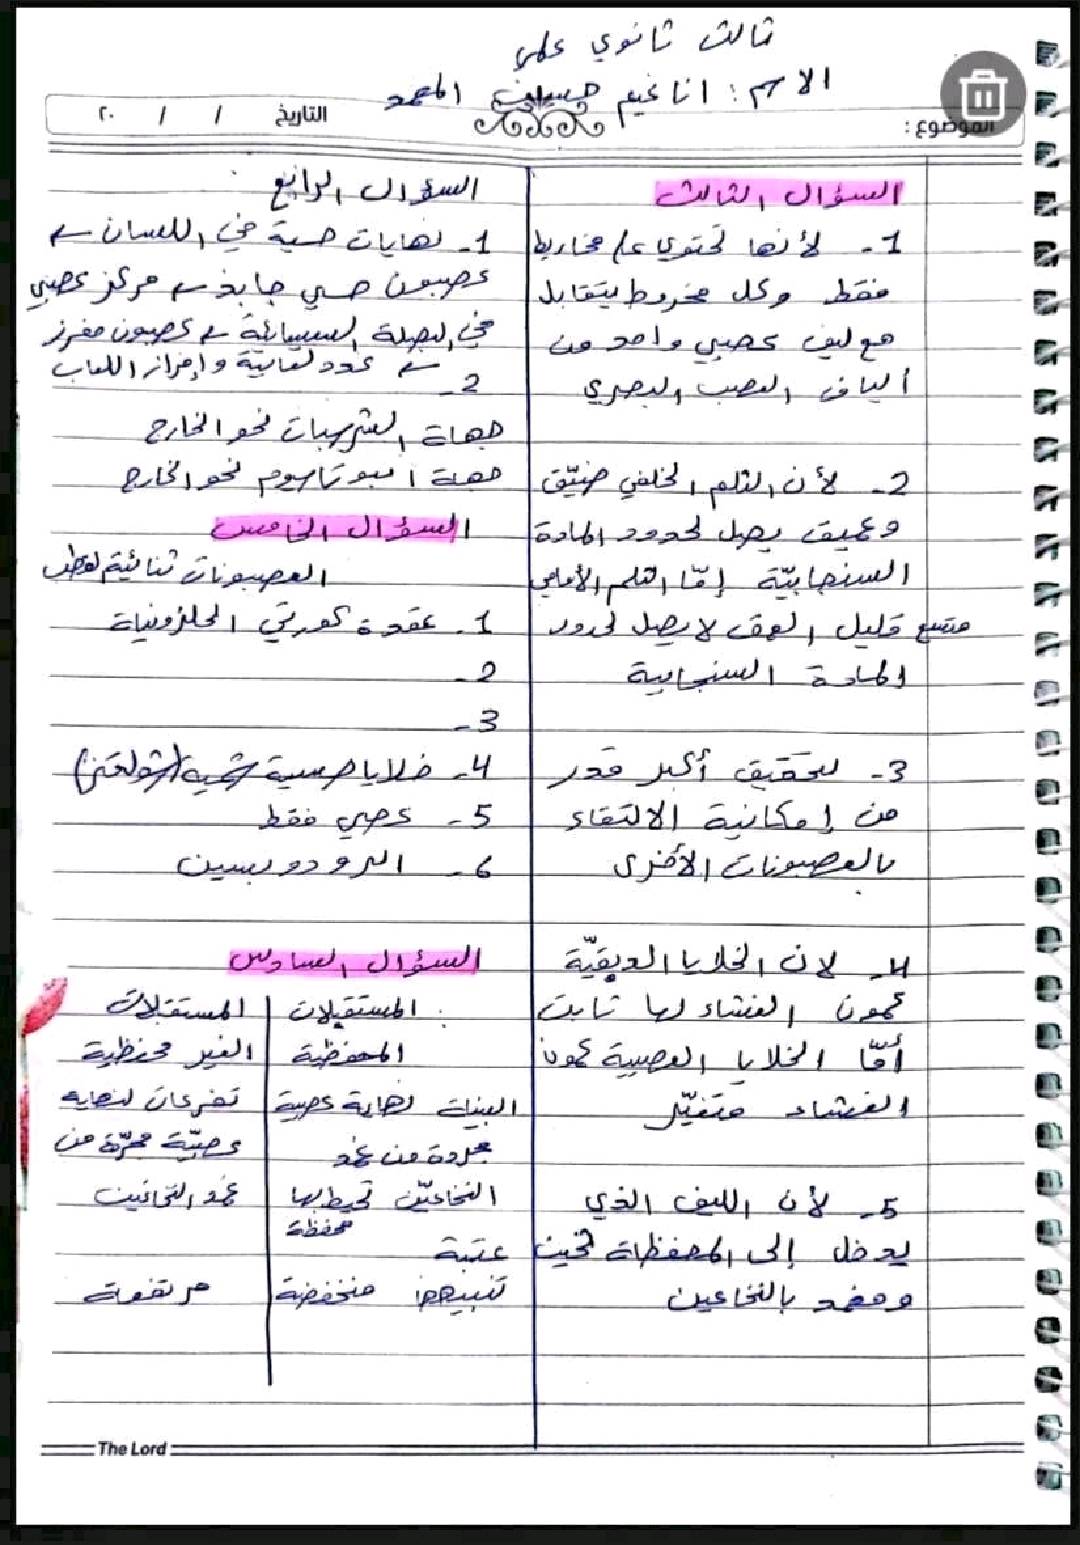 ثالث ثانوي علمي
الاسم: أناغيم حسين المحمد
الموضوع:
التاريخ / / ٢٠
السؤال الثالث
1- لأنها تحتوي على مخاريط
فقط وكل مخروط يتقابل
مع ليف عصبي واحد من
ألياف العصب البصري
2- لأن الثلم الخلفي ضيّق
وعميق يصل لحدود المادة
السنجابيّة إمّا الثلم الأمامي
متسع قليل العمق لا يصل لحدود
المادة السنجابية
3- لتحقيق أكبر قدر
من إمكانية الالتقاء
بالعصبونات الأخرى
4- لان الخلايا الدبقيّة
كمون الغشاء لها ثابت
أمّا الخلايا العصبية كمون
الغشاء متغيّر
5- لأن الليف الذي
يدخل إلى المحفظة ثخين
ومغمد بالنخاعين
السؤال الرابع
1- نهايات حسية في اللسان ←
عصبون حسي جابذ ← مركز عصبي
في البصلة السيسائية ← عصبون مفرز
← غدد لعابية وإفراز اللعاب
2-
جهة الشرسبات نحو الخارج
جهة البوتاسيوم نحو الخارج
السؤال الخامس
العصبونات ثنائية القطب
1- عقدة كورتي الحلزونية
2-
3-
4- خلايا حسية شمية (شولتز)
5- عصبي فقط
6- الرودوبسين
السؤال السادس
المستقبلات | المستقبلات
المحفظية | الغير محفظية
البنية نهاية عصبية | تفرعات لنهاية
مجردة من غمد | عصبيّة مجرّدة من
النخاعيّن تحيط بها | غمد النخاعين
محفظة
عتبة
تنبيهها منخفضة | مرتفعة
The Lord